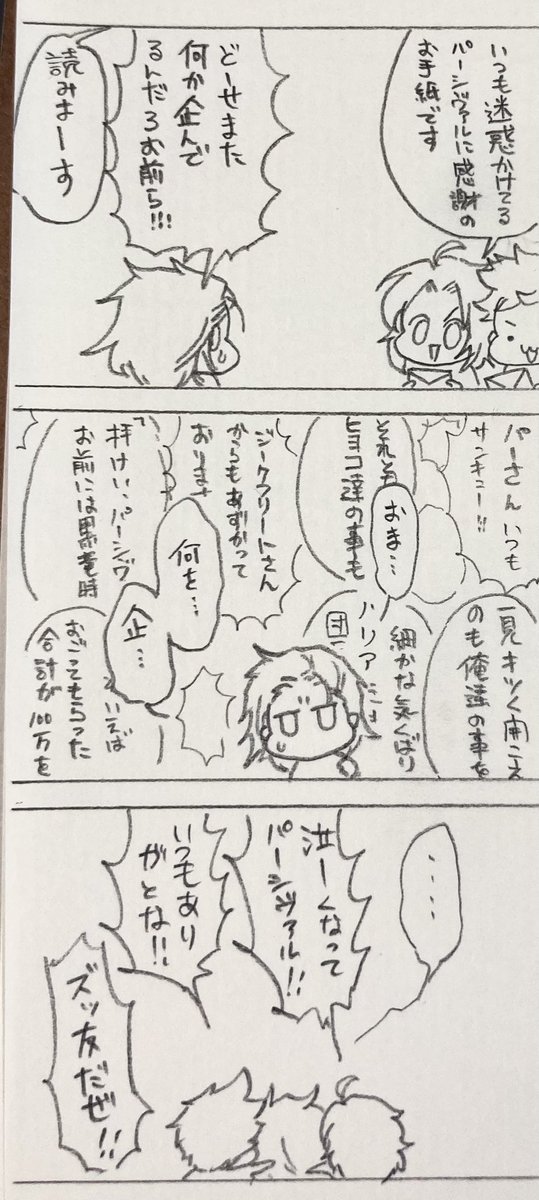 いつも迷惑かけてる
パーシヴァルに感謝の
お手紙です
どーせまた
何か企んで
るんだろお前ら!!!
読みまーす
パーさんいつも
サンキュー!!
一見キツく聞こえ
のも俺達の事を
おま…
それとも
ヒヨコ達の事も
細かな気くばり
ハリア
団
ジークフリートさん
からもあずかって
おります
何を…
企…
拝けい、パーシヴ
お前には黒竜時
いえば
おごってもらった
合計が100万を
・・・・
泣ーくなって
パーシヴァル!!
いつもあり
がとな!!
ズッ友だぜ!!